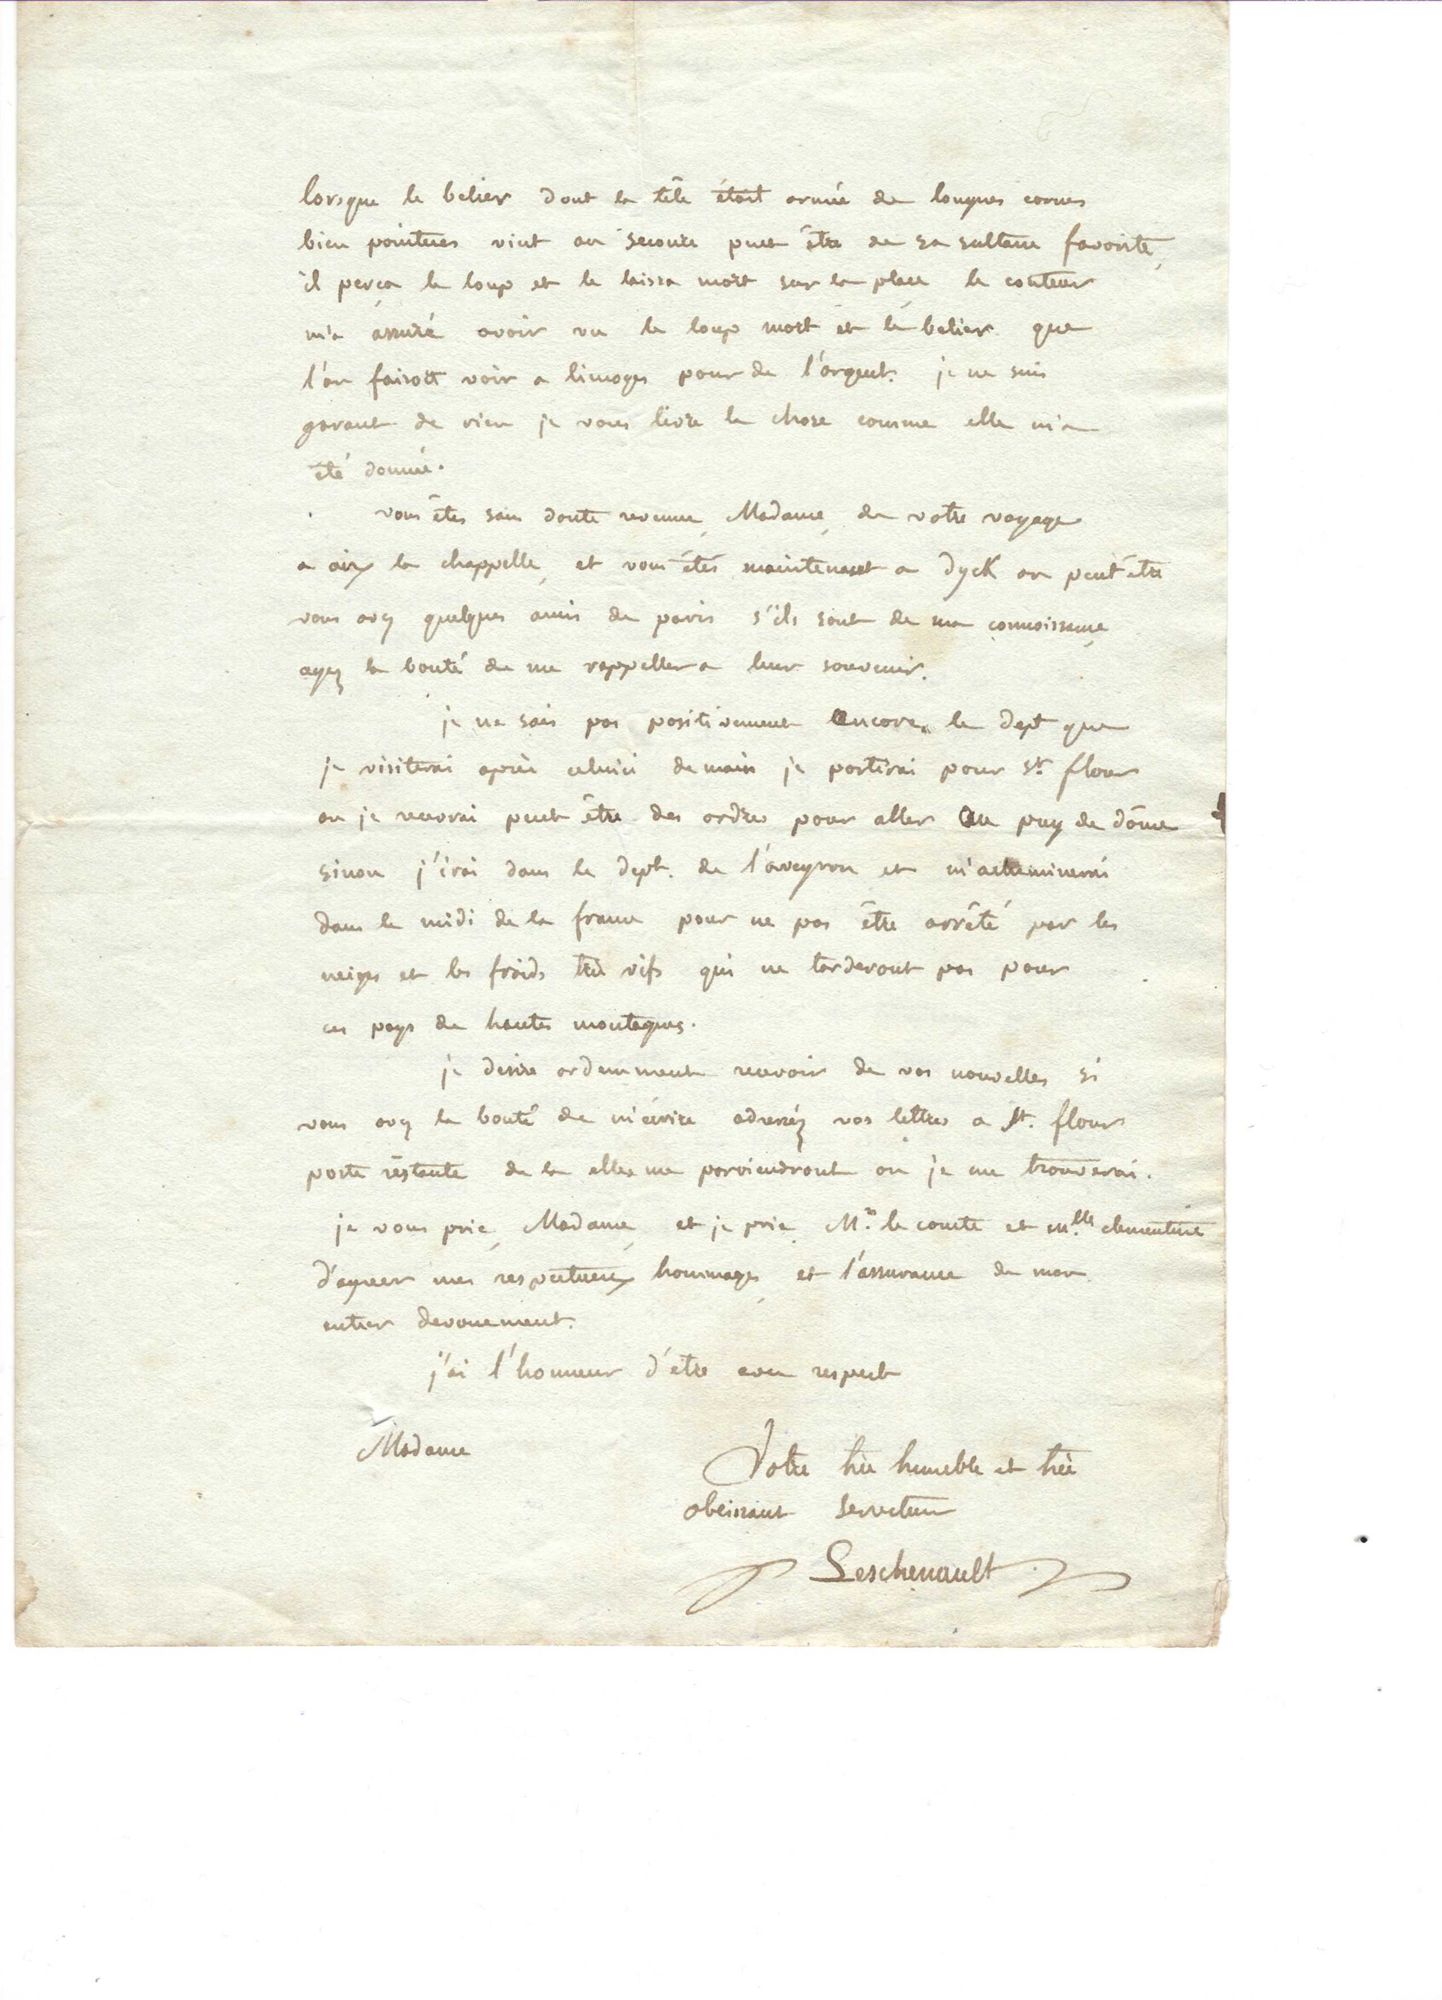 lorsque le belier dont la tête étoit armée de longues cornes
bien pointues vint au secours peut être de sa sultane favorite,
il perça le loup et le laissa mort sur la place le conteur
m'a assuré avoir vu le loup mort et le belier que
l'on faisoit voir a limoges pour de l'argent. je ne suis
garant de rien je vous livre la chose comme elle m'a
été donnée.
vous êtes sans doute revenue, Madame, de votre voyage
a aix la chappelle, et vous êtes maintenant a Dyck ou peut être
vous avez quelques amis de paris s'ils sont de ma connoissance,
ayez la bonté de me rappeller a leur souvenir.
je ne sais pas positivement encore le dept que
je visiterai après celuici demain je partirai pour st. flour
ou je recevrai peut être des ordres pour aller au puy de dôme
sinon j'irai dans le dept. de l'aveyron et m'acheminerai
dans le midi de la france pour ne pas être arrêté par les
neiges et les froids très vifs qui ne tarderont pas pour
ces pays de hautes montagnes.
je desire ardemment recevoir de vos nouvelles si
vous avez la bonté de m'écrire adressez vos lettres a st. flour
poste restante de la elles me parviendront ou je me trouverai.
je vous prie, Madame, et je prie Mr. le comte et mlle. clementine
d'agreer mes respectueux hommages, et l'assurance de mon
entier devouement.
j'ai l'honneur d'etre avec respect
Madame
Votre très humble et très
obeissant serviteur
Leschenault